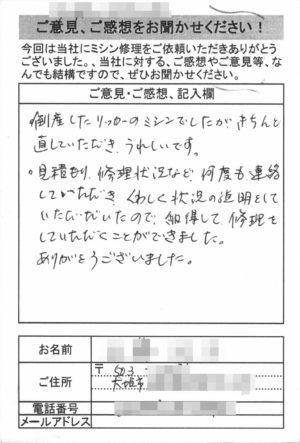 ご意見、ご感想をお聞かせください!
今回は当社にミシン修理をご依頼いただきありがとう
ございました。、当社に対する、ご感想やご意見等、な
んでも結構ですので、ぜひお聞かせください。
ご意見・ご感想、記入欄
・倒産したリッカーのミシンでしたが、きちんと
直していただき、うれしいです。
・見積もり、修理状況など、何度も連絡
していただき、くわしく状況の説明をして
いただいたので、納得して、修理を
していただくことができました。
ありがとうございました。
お名前
ご住所
〒503
大垣市
電話番号
メールアドレス